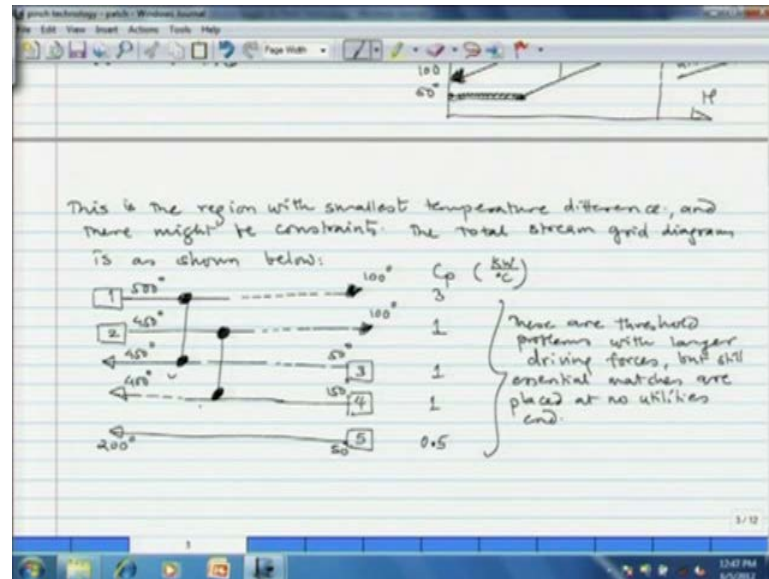 pinch technology - patch - Windows Journal
File Edit View Insert Actions Tools Help
Page Width
100
50°
H
This is the region with smallest temperature difference, and
there might be constraints. The total stream grid diagram
is as shown below:
Cp (KW/°C)
1 500° 100° 3
2 450° 100° 1
450° 50° 3 1
400° 150 4 1
200° 50° 5 0.5
These are threshold
problems with larger
driving forces, but still
essential matches are
placed at no utilities
end.
3/12
1
12:47 PM
6/5/2012